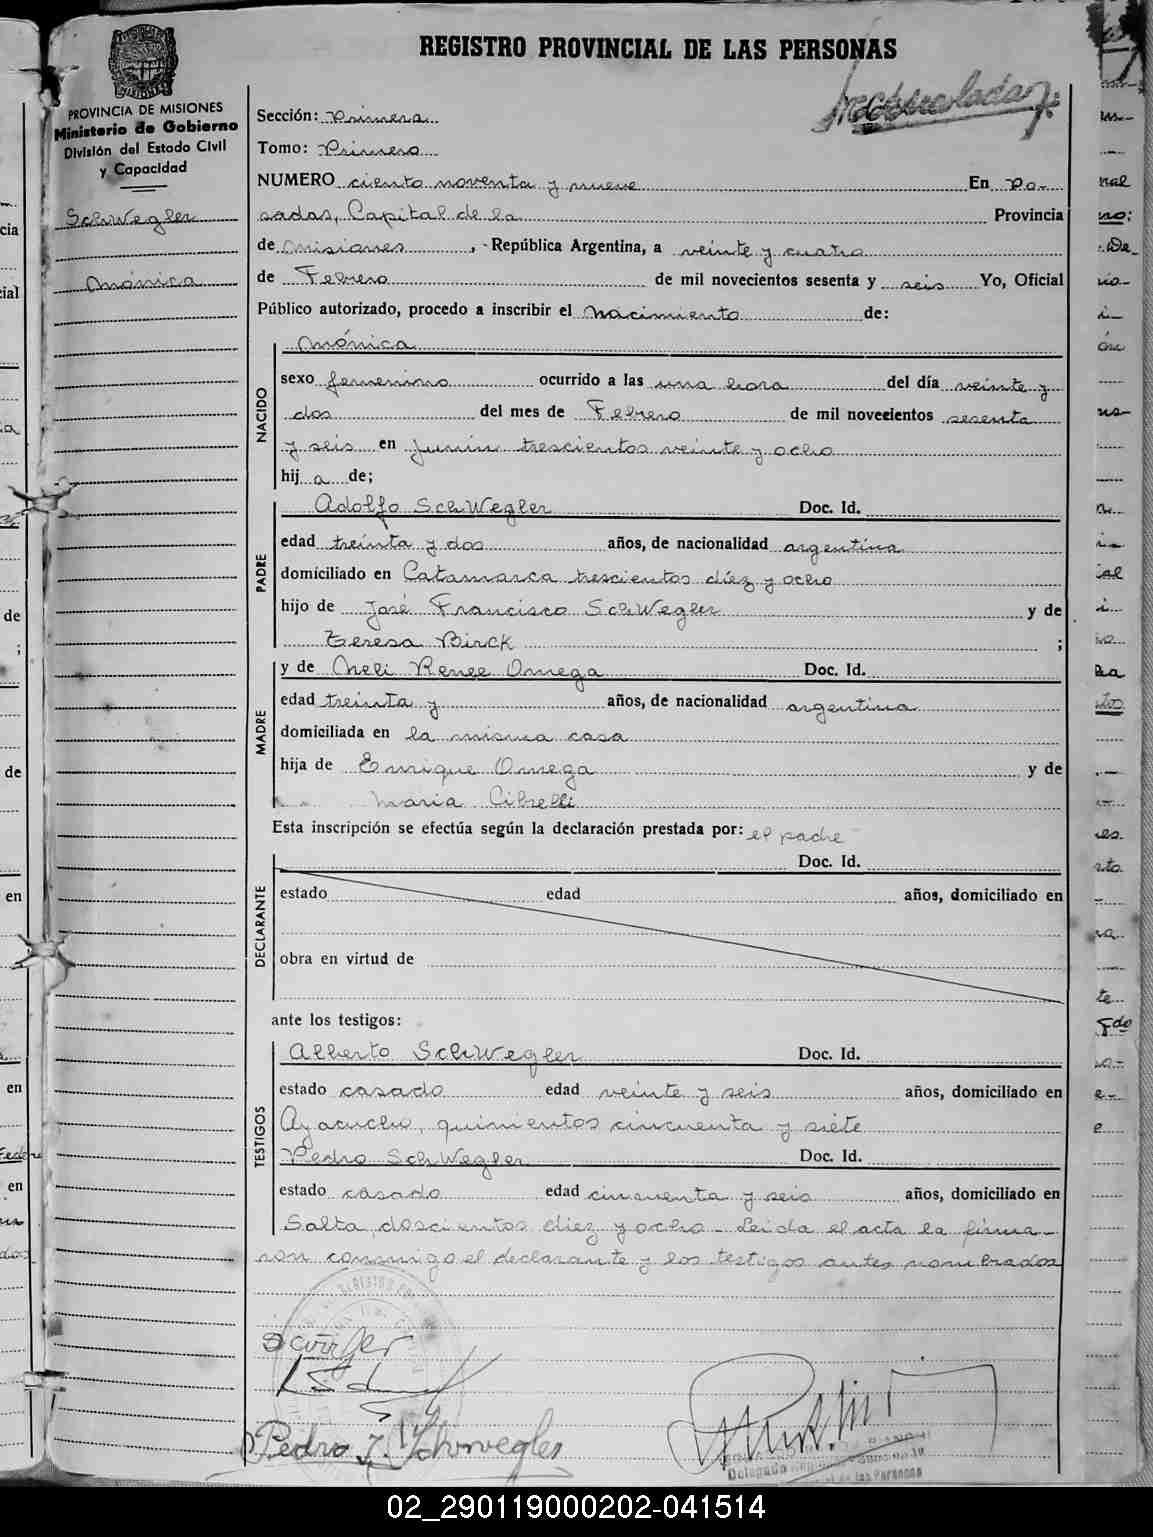 REGISTRO PROVINCIAL DE LAS PERSONAS
PROVINCIA DE MISIONES
Ministerio de Gobierno
División del Estado Civil
y Capacidad
SchWegler
Mónica
Sección: Primera
Tomo: Primero
NUMERO ciento noventa y nueve En Po-
sadas, Capital de la Provincia
de Misiones, República Argentina, a veinte y cuatro
de Febrero de mil novecientos sesenta y seis Yo, Oficial
Público autorizado, procedo a inscribir el nacimiento de:
NACIDO
Mónica
sexo femenino ocurrido a las una hora del día veinte y
dos del mes de Febrero de mil novecientos sesenta
y seis en Junín trescientos veinte y ocho
hij a de;
PADRE
Adolfo SchWegler Doc. Id.
edad treinta y dos años, de nacionalidad argentina
domiciliado en Catamarca trescientos díez y ocho
hijo de José Francisco SchWegler y de
Teresa Birck ;
MADRE
y de Neli Renee Omega Doc. Id.
edad treinta y años, de nacionalidad argentina
domiciliada en la misma casa
hija de Enrique Omega y de
Maria Cibrelli
Esta inscripción se efectúa según la declaración prestada por: el padre
DECLARANTE
Doc. Id.
estado edad años, domiciliado en
obra en virtud de
ante los testigos:
TESTIGOS
Alberto SchWegler Doc. Id.
estado casado edad veinte y seis años, domiciliado en
Ayacucho, quinientos cincuenta y siete
Pedro SchWegler Doc. Id.
estado casado edad cincuenta y seis años, domiciliado en
Salta, doscientos diez y ocho - Leída el acta la firma-
ron conmigo el declarante y los testigos antes nombrados
Pedro J. Schwegler
Delegado
de las Personas
02_290119000202-041514